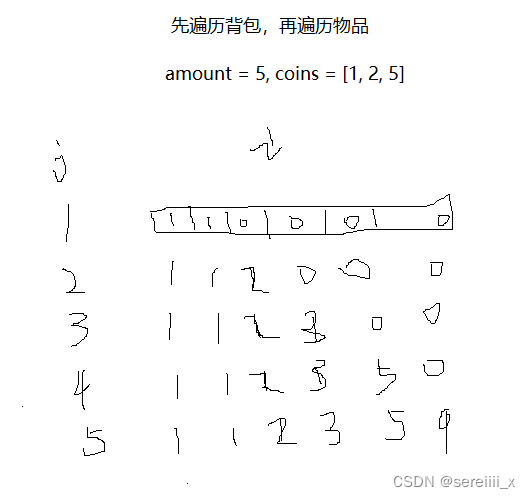 先遍历背包，再遍历物品
amount = 5, coins = [1, 2, 5]
j i
1 1 1 0 0 0 0
2 1 1 2 0 0 0
3 1 1 2 3 0 0
4 1 1 2 3 5 0
5 1 1 2 3 5 9
CSDN @sereiiii_x